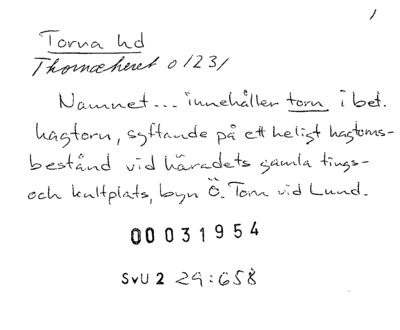 1
Torna hd
Thornæheret o 1231
Namnet... innehåller torn i bet.
hagtorn, syftande på ett heligt hagtorns-
bestånd vid häradets gamla tings-
och kultplats, byn Ö. Torn vid Lund.
00031954
SvU 2 29:658